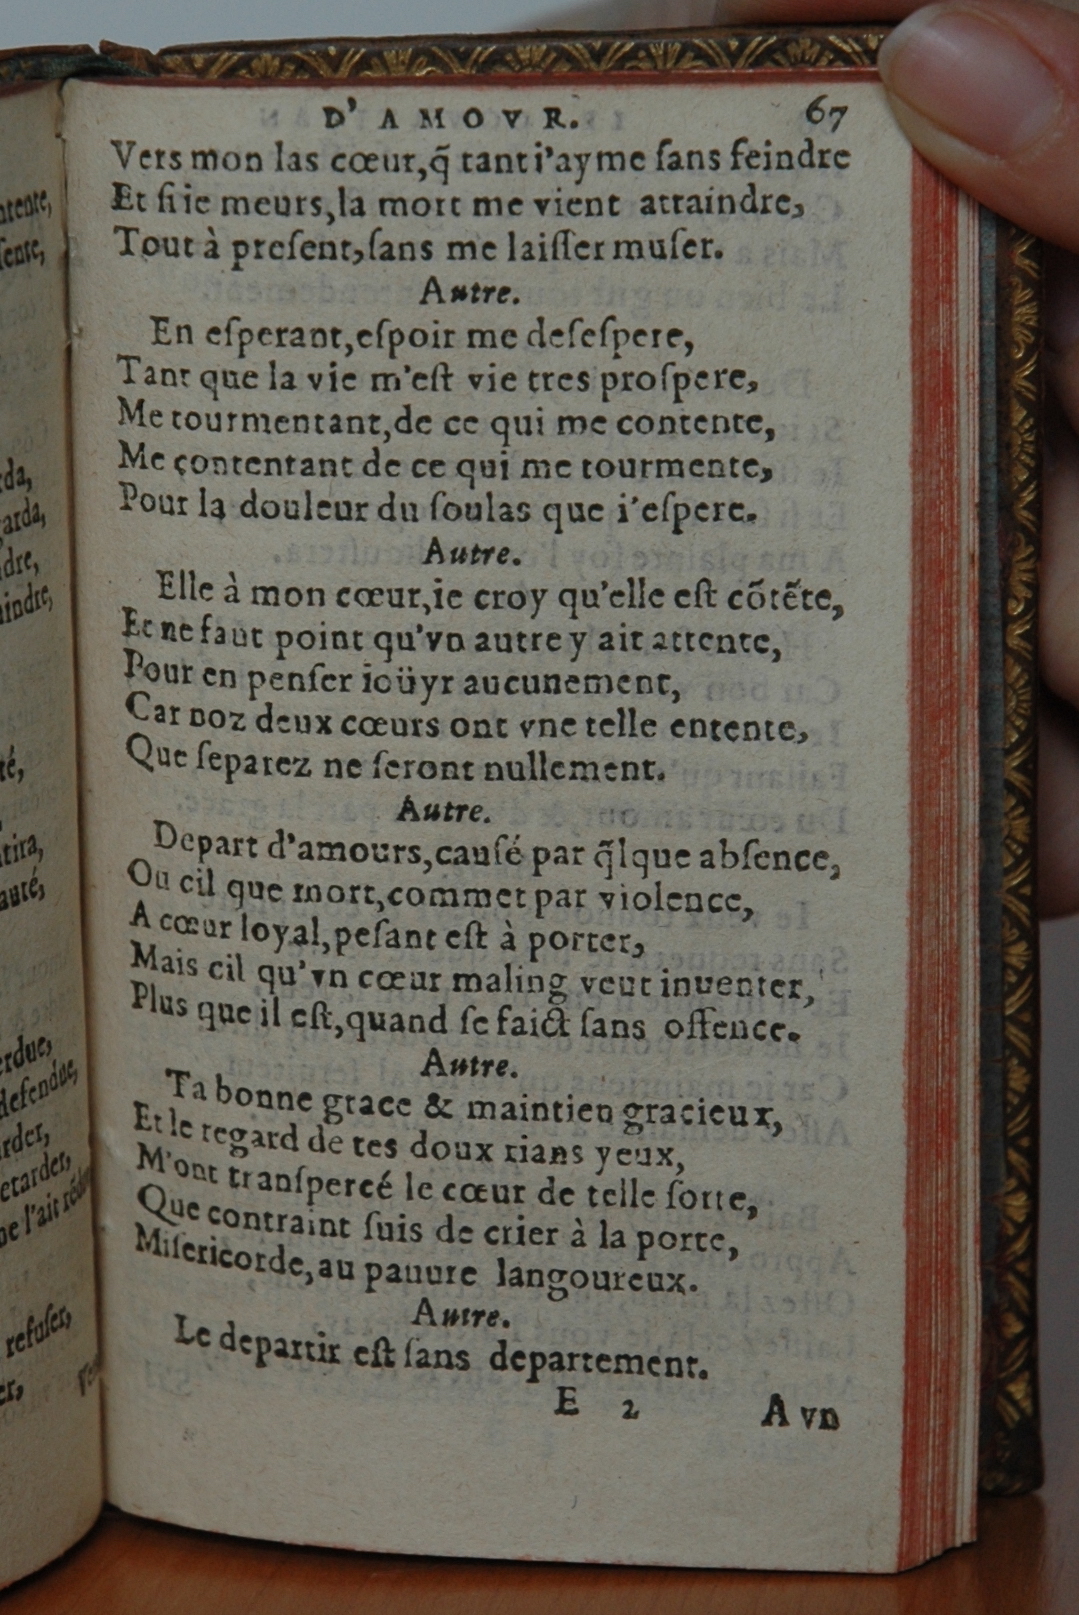 D' AMOVR. 67
Vers mon las cœur, q̃ tant i'ayme ſans feindre
Et ſi ie meurs, la mort me vient attraindre,
Tout à preſent, ſans me laiſſer muſer.
Autre.
En eſperant, eſpoir me deſeſpere,
Tant que la vie m'eſt vie tres proſpere,
Me tourmentant, de ce qui me contente,
Me contentant de ce qui me tourmente,
Pour la douleur du ſoulas que i'eſpere.
Autre.
Elle à mon cœur, ie croy qu'elle eſt cõtẽte,
Et ne faut point qu'vn autre y ait attente,
Pour en penſer ioüyr aucunement,
Car noz deux cœurs ont vne telle entente,
Que ſeparez ne ſeront nullement.
Autre.
Depart d'amours, cauſé par q̃lque abſence,
Ou cil que mort, commet par violence,
A cœur loyal, peſant eſt à porter,
Mais cil qu'vn cœur maling veut inuenter,
Plus que il eſt, quand ſe faict ſans offence.
Autre.
Ta bonne grace & maintien gracieux,
Et le regard de tes doux rians yeux,
M'ont tranſpercé le cœur de telle ſorte,
Que contraint ſuis de crier à la porte,
Miſericorde, au pauure langoureux.
Autre.
Le departir eſt ſans departement.
E 2 A vn
ntente,
ſente,
rda,
arda,
dre,
aindre,
té,
tira,
auté,
erdue,
defendue,
arder,
etarder,
ne l'ait
refuſer,
er,